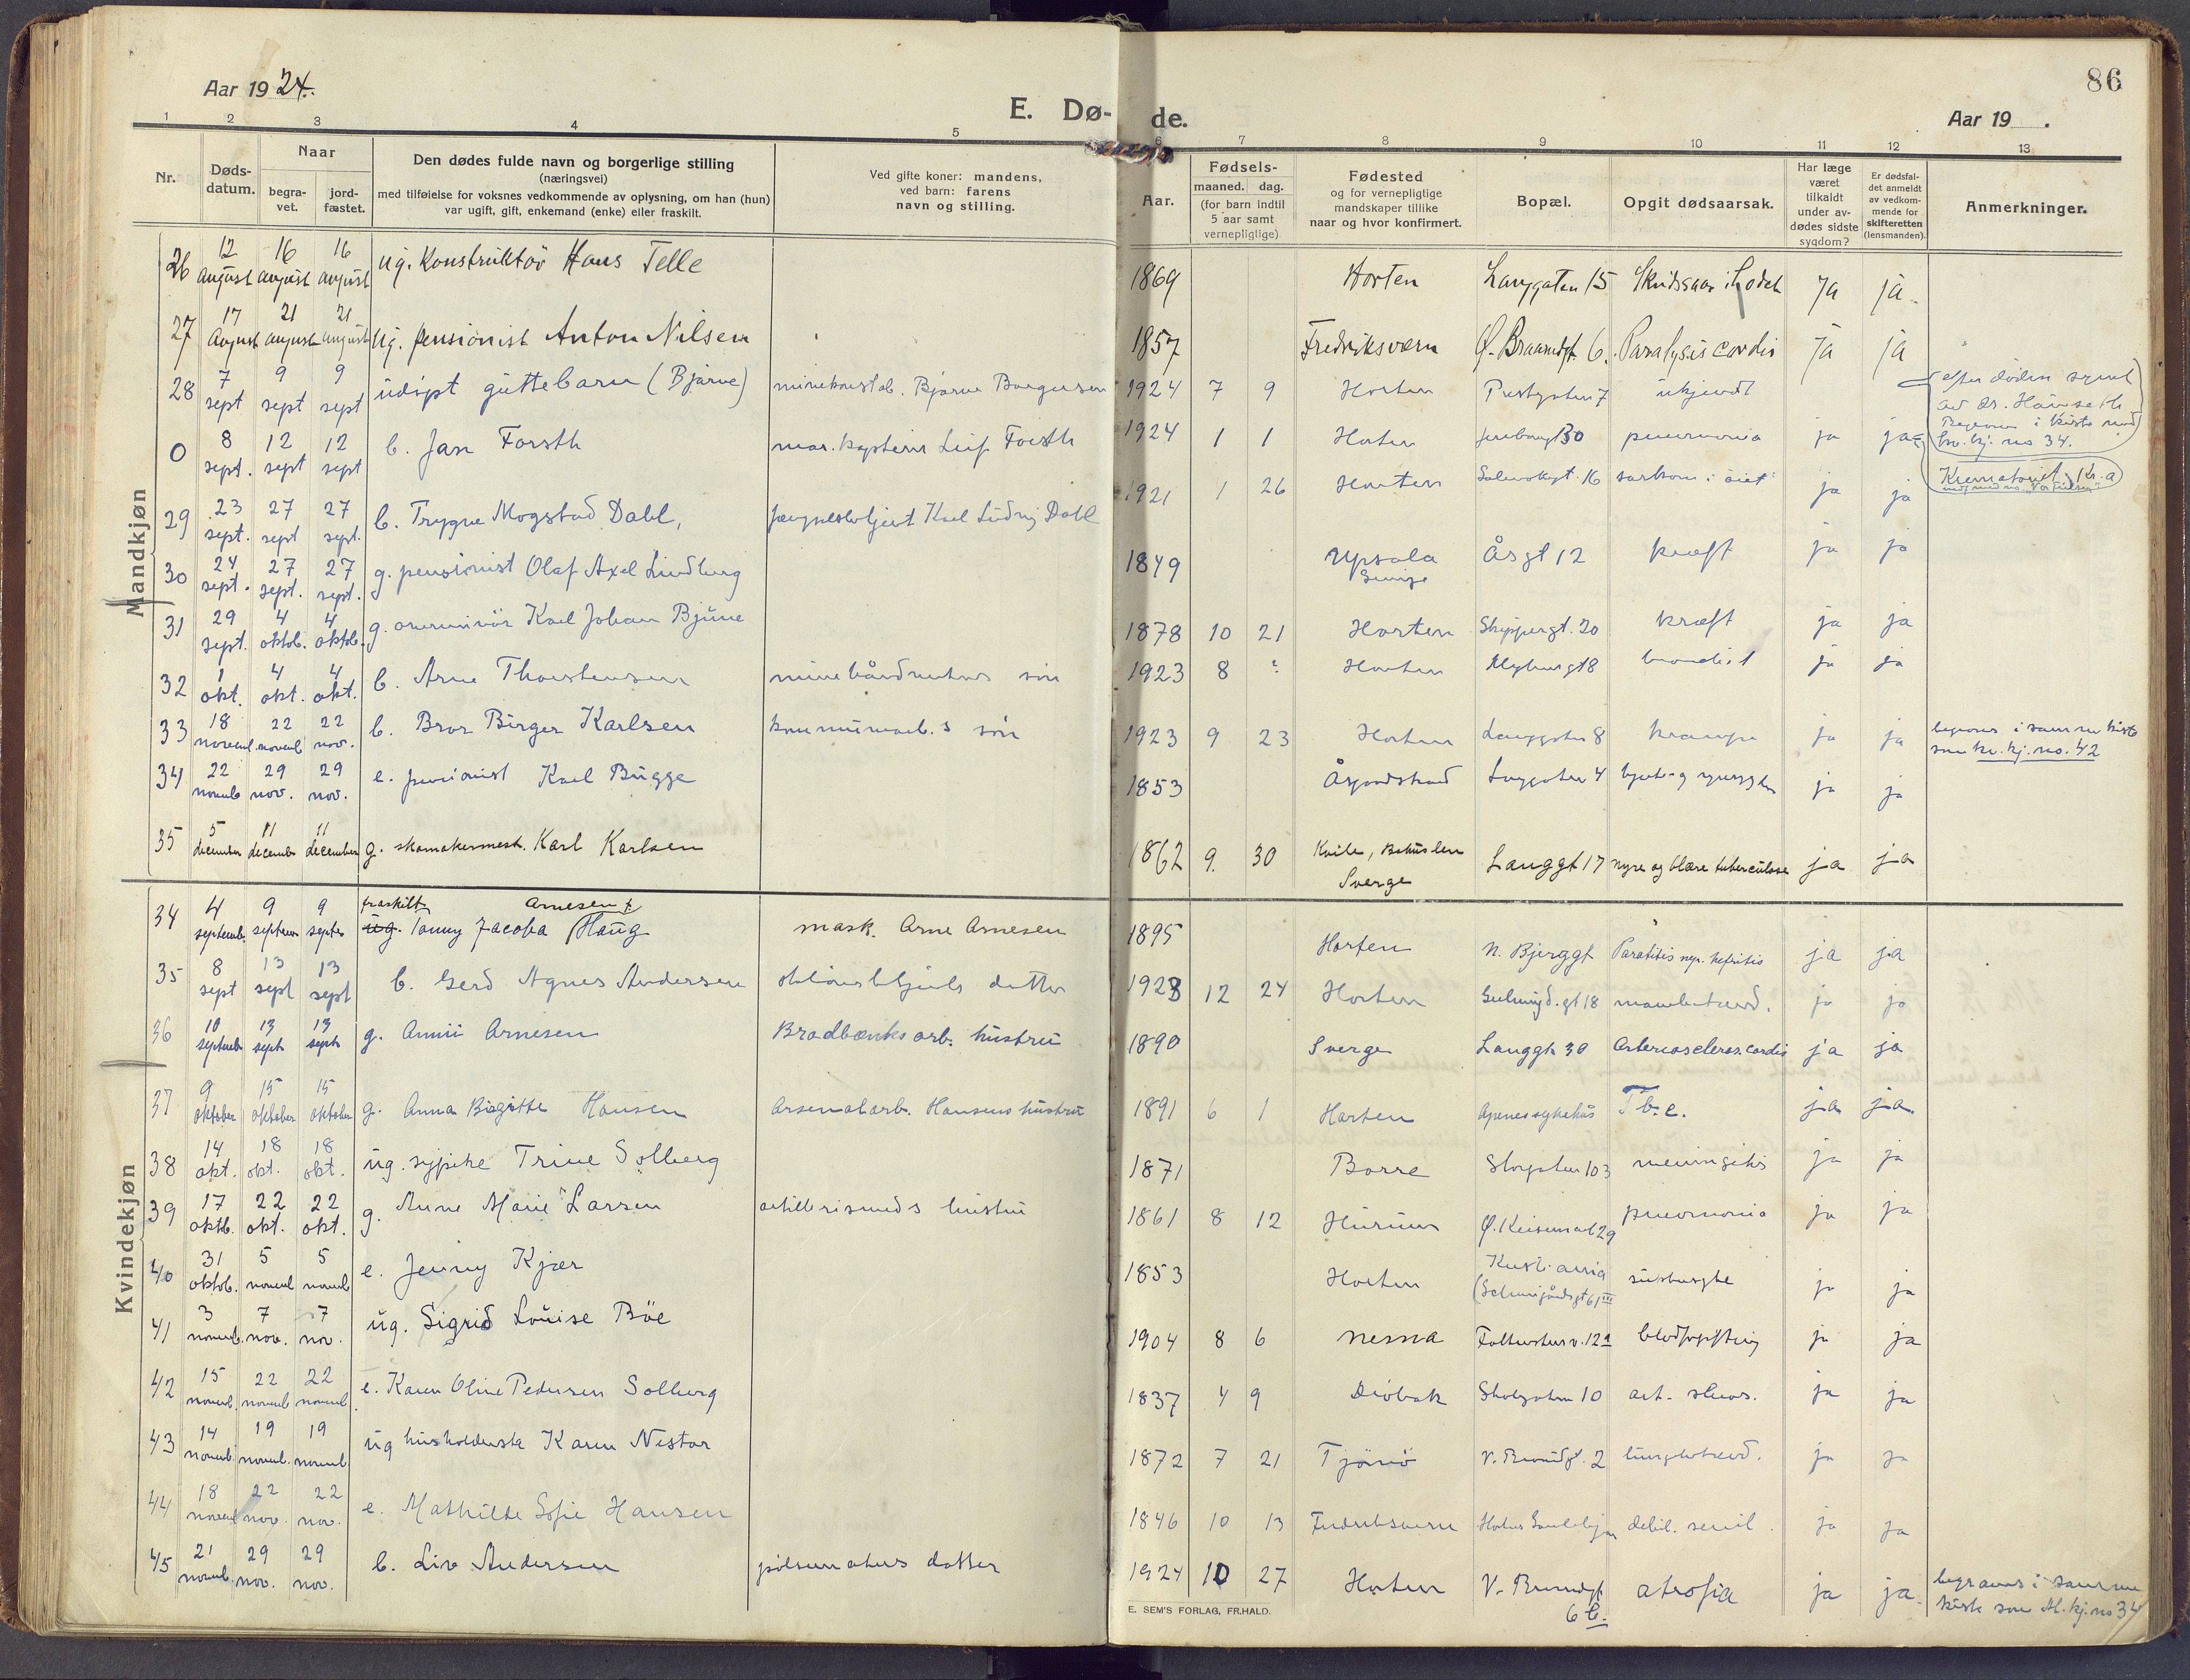 86
Aar 1924.
E. Dø- de.
Aar 19 .
1 2 3 4 5 6 7 8 9 10 11 12 13
Nr.
Døds-
datum.
Naar
begra-
vet.
jord-
fæstet.
Den dødes fulde navn og borgerlige stilling
(næringsvei)
med tilføielse for voksnes vedkommende av oplysning, om han (hun)
var ugift, gift, enkemand (enke) eller fraskilt.
Ved gifte koner: mandens,
ved barn: farens
navn og stilling.
Aar.
Fødsels-
maaned. dag.
(for barn indtil
5 aar samt
vernepligtige)
Fødested
og for vernepligtige
mandskaper tillike
naar og hvor konfirmert.
Bopæl.
Opgit dødsaarsak.
Har læge
været
tilkaldt
under av-
dødes sidste
sygdom?
Er dødsfal-
det anmeldt
av vedkom-
mende for
skifteretten
(lensmanden).
Anmerkninger.
Mandkjøn
26 12 august 16 august 16 august ug. Konstruktör Hans Telle 1869 Horten Langgaten 15 Skudsaar i hodet ja ja
27 17 August 21 august 21 august ug. pensionist Anton Nilsen 1857 Fredriksværn Ø. Braarudgt 6. Paralysis cordis ja ja
28 7 sept 9 sept 9 sept udøpt guttebarn (Bjarne) minekonstab. Bjarne Borgersen 1924 7 9 Horten Prestegaten 7 ukjendt
0 8 sept. 12 sept 12 sept b. Jan Forsth mar. kaptein Leif Forsth 1924 1 1 Horten 30 pneumonia ja ja
29 23 sept. 27 sept 27 sept. b. Trygve Mogstad Dahl, Ludvig Dahl 1921 1 26 Horten 16 sarkom i øiet ja ja Krematoriet, Kr.a
30 24 sept. 27 sept. 27 sept. g. pensionist Olaf Axel Lindberg 1849 Upsala Åsgt 12 kræft ja ja
31 29 sept. 4 oktob. 4 oktob. g. Karl Johan Bjune 1878 10 21 Horten Skippergt. 20 kræft ja ja
32 1 okt. 4 okt. 4 okt. b. Arne Thorstensen sön 1923 8 ? Horten 8 ja ja
33 18 novemb. 22 novemb 22 nov. b. Bror Birger Karlsen kommunearb.s sön 1923 9 23 Horten Langgaten 8 krampe ja ja begraves i samme kiste
som kv. kj. no. 42
34 22 novemb 29 nov. 29 nov. e. pensionist Karl Bugge 1853 Åsgaardstrand Langgaten 4 ja ja
35 5 december 11 december 11 december g. skomakermest. Karl Karlsen 1862 9. 30 Kville, Bohuslen
Sverge Langgt 17 nyre og blære tuberculose ja ja
Kvindekjøn
34 4 septemb. 9 septem 9 septem fraskilt ug. Tonny Jacoba Haug Arnesen f. mask. Arne Arnesen 1895 Horten N. Bjerggt Parotitis nefritis ja ja
35 8 sept 13 sept 13 sept b. Gerd Agnes Andersen datter 1923 12 24 Horten 18 ja ja
36 10 septemb 13 sept 13 sept g. Anni Arnesen Bradbænksarb. hustru 1890 Sverge Langgt 30 Arterioscleros. cordis ja ja
37 9 oktober 15 oktober 15 oktober g. Anna Birgitte Hansen Arsenalarb. Hansens hustru 1891 6 1 Horten Apenes sykehus Tb.c. ja ja
38 14 okt. 18 okt. 18 okt. ug. sypike Trine Solberg 1871 Borre Storgaten 103 meningitis ja ja
39 17 oktb. 22 okt. 22 okt. g. Anne Marie Larsen artillerismeds hustru 1861 8 12 Hurum Ø. Keisemark 29 pneumonia ja ja
40 31 oktob. 5 novemb 5 novemb e. Jenny Kjær 1853 Horten sukkersyke ja ja
41 3 novemb. 7 nov. 7 nov. ug. Sigrid Louise Böe 1904 8 6 Nesna 12a blodforgiftning ja ja
42 15 novemb. 22 novemb 22 novemb e. Karen Oline Pedersen Solberg 1837 4 9 Dröbak 10 art. skleros. ja ja
43 14 novemb. 19 novemb. 19 novemb ug husholderske Karen Nestor 1872 7 21 Tjömö V. Braarudgt. 2 ja ja
44 18 novemb 22 nov. 22 nov. e. Mathilde Sofie Hansen 1846 10 13 Fredriksværn Horten Gamlehjem debil. senil. ja ja
45 21 novemb. 29 nov. 29 nov. b. Liv Andersen pölsemakers datter 1924 10 27 Horten V. Braarudgt
6 b. atrofia ja ja begraves i samme
kiste som M. kj. no 34
E. SEM'S FORLAG, FR.HALD.